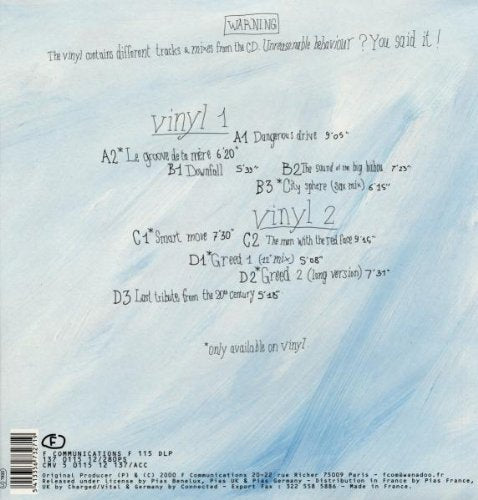 WARNING
The vinyl contains different tracks & mixes from the CD. Unreasonable behaviour ? You said it !
vinyl 1
A1 Dangerous drive 9'05"
A2* Le groove de la mère 6'20"
B1 Downfall 5'33" B2 The sound of the big babou 7'23"
B3 *City sphere (sax mix) 6'15"
vinyl 2
C1* Smart move 7'30" C2 The man with the red face 9'15"
D1* Greed 1 (12" mix) 5'08"
D2* Greed 2 (long version) 7'31"
D3 Last tribute from the 20th century 5'18"
*only available on vinyl
F
F COMMUNICATIONS F 115 DLP
137 0115 12/280PS
CMV 5 0115 12 137/ACC
Original Producer (P) & (C) 2000 F Communications 20-22 rue Richer 75009 Paris - fcom@wanadoo.fr
Released under license by Pias Benelux, Pias UK & Pias Germany - Distribution in France by Pias France,
UK by Charged/Vital & Germany by Connected - Export Fax : 322 558 5886 - Made in France